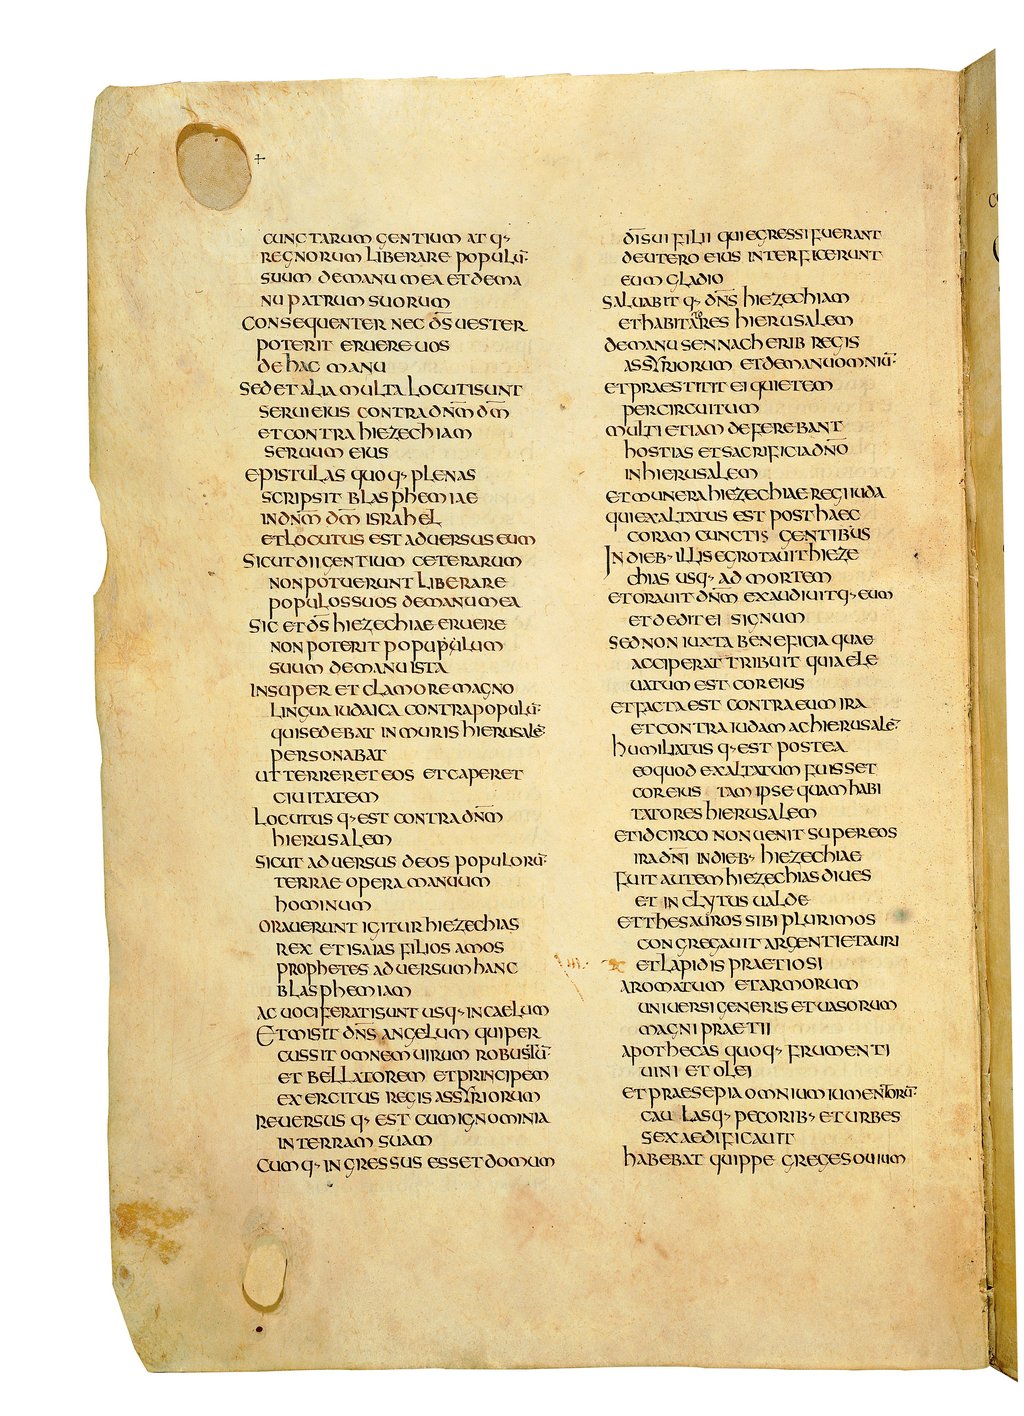 +
CUNCTARUM GENTIUM AT Q·
REGNORUM LIBERARE POPULŪ·
SUUM DEMANU MEA ET DEMA
NU PATRUM SUORUM
CONSEQUENTER NEC D̄S UESTER
POTERIT ERUERE UOS
DE HAC MANU
SED ET ALIA MULTA LOCUTI SUNT
SERUI EIUS CONTRA DN̄M D̄M
ET CONTRA HIEZECHIAM
SERUUM EIUS
EPISTULAS QUOQ· PLENAS
SCRIPSIT BLASPHEMIAE
IN DN̄M D̄M ISRAHEL
ET LOCUTUS EST ADUERSUS EUM
SICUT DII GENTIUM CETERARUM
NON POTUERUNT LIBERARE
POPULOS SUOS DEMANU MEA
SIC ET D̄S HIEZECHIAE ERUERE
NON POTERIT POPUPULUM
SUUM DEMANU ISTA
INSUPER ET CLAMORE MAGNO
LINGUA IUDAICA CONTRA POPULŪ·
QUI SEDEBAT IN MURIS HIERUSALĒ·
PERSONABAT
UT TERRERET EOS ET CAPERET
CIUITATEM
LOCUTUS Q· EST CONTRA DN̄M
HIERUSALEM
SICUT ADUERSUS DEOS POPULORŪ·
TERRAE OPERA MANUUM
HOMINUM
ORAUERUNT IGITUR HIEZECHIAS
REX ET ISAIAS FILIOS AMOS
PROPHETES ADUERSUM HANC
BLASPHEMIAM
AC UOCIFERATI SUNT USQ· IN CAELUM
ET MISIT DN̄S ANGELUM QUI PER
CUSSIT OMNEM UIRUM ROBUSTŪ·
ET BELLATOREM ET PRINCIPEM
EXERCITUS REGIS ASSYRIORUM
REUERSUS Q· EST CUM IGNOMINIA
IN TERRAM SUAM
CUM Q· INGRESSUS ESSET DOMUM
D̄I SUI FILII QUI EGRESSI FUERANT
DE UTERO EIUS INTERFICERUNT
EUM GLADIO
SALUABIT Q· DN̄S HIEZECHIAM
ET HABITATORES HIERUSALEM
DEMANU SENNACHERIB REGIS
ASSYRIORUM ET DEMANU OMNIŪ·
ET PRAESTITIT EI QUIETEM
PER CIRCUITUM
MULTI ETIAM DEFEREBANT
HOSTIAS ET SACRIFICIA DN̄O
IN HIERUSALEM
ET MUNERA HIEZECHIAE REGI IUDA
QUI EXALTATUS EST POST HAEC
CORAM CUNCTIS GENTIBUS
IN DIEB· ILLIS EGROTAUIT HIEZE
CHIAS USQ· AD MORTEM
ET ORAUIT DN̄M EXAUDIUITQ· EUM
ET DEDIT EI SIGNUM
SED NON IUXTA BENEFICIA QUAE
ACCIPERAT TRIBUIT QUIA ELE
UATUM EST COR EIUS
ET FACTA EST CONTRA EUM IRA
ET CONTRA IUDAM AC HIERUSALĒ·
HUMILIATUS Q· EST POSTEA
EO QUOD EXALTATUM FUISSET
COR EIUS TAM IPSE QUAM HABI
TATORES HIERUSALEM
ET IDCIRCO NON UENIT SUPER EOS
IRA DN̄I IN DIEB· HIEZECHIAE
FUIT AUTEM HIEZECHIAS DIUES
ET INCLYTUS UALDE
ET THESAUROS SIBI PLURIMOS
CONGREGAUIT ARGENTI ET AURI
ET LAPIDIS PRAETIOSI
AROMATUM ET ARMORUM
UNIUERSI GENERIS ET UASORUM
MAGNI PRAETII
APOTHECAS QUOQ· FRUMENTI
UINI ET OLEI
ET PRAESEPIA OMNIUM IUMENTORŪ·
CAULASQ· PECORIB· ET URBES
SEX AEDIFICAUIT
HABEBAT QUIPPE GREGES OUIUM